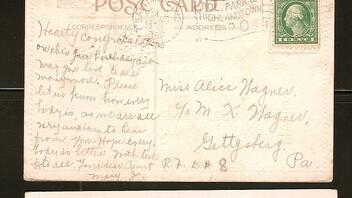 POST CARD
CORRESPONDENCE
ADDRESS
PARK
HIGHLANDTOWN
Hearty congratulations
on this your birthday and
may you live to see
many more. Please
let us from
body is, as we are all
very anxious to hear
from you. Hope every
body is better. With love
to all. Your dear Aunt
Mary J.
Miss Alice Wagner,
c/o M. K. Wagner,
Gettysberg,
R.F.D. # 8 Pa.